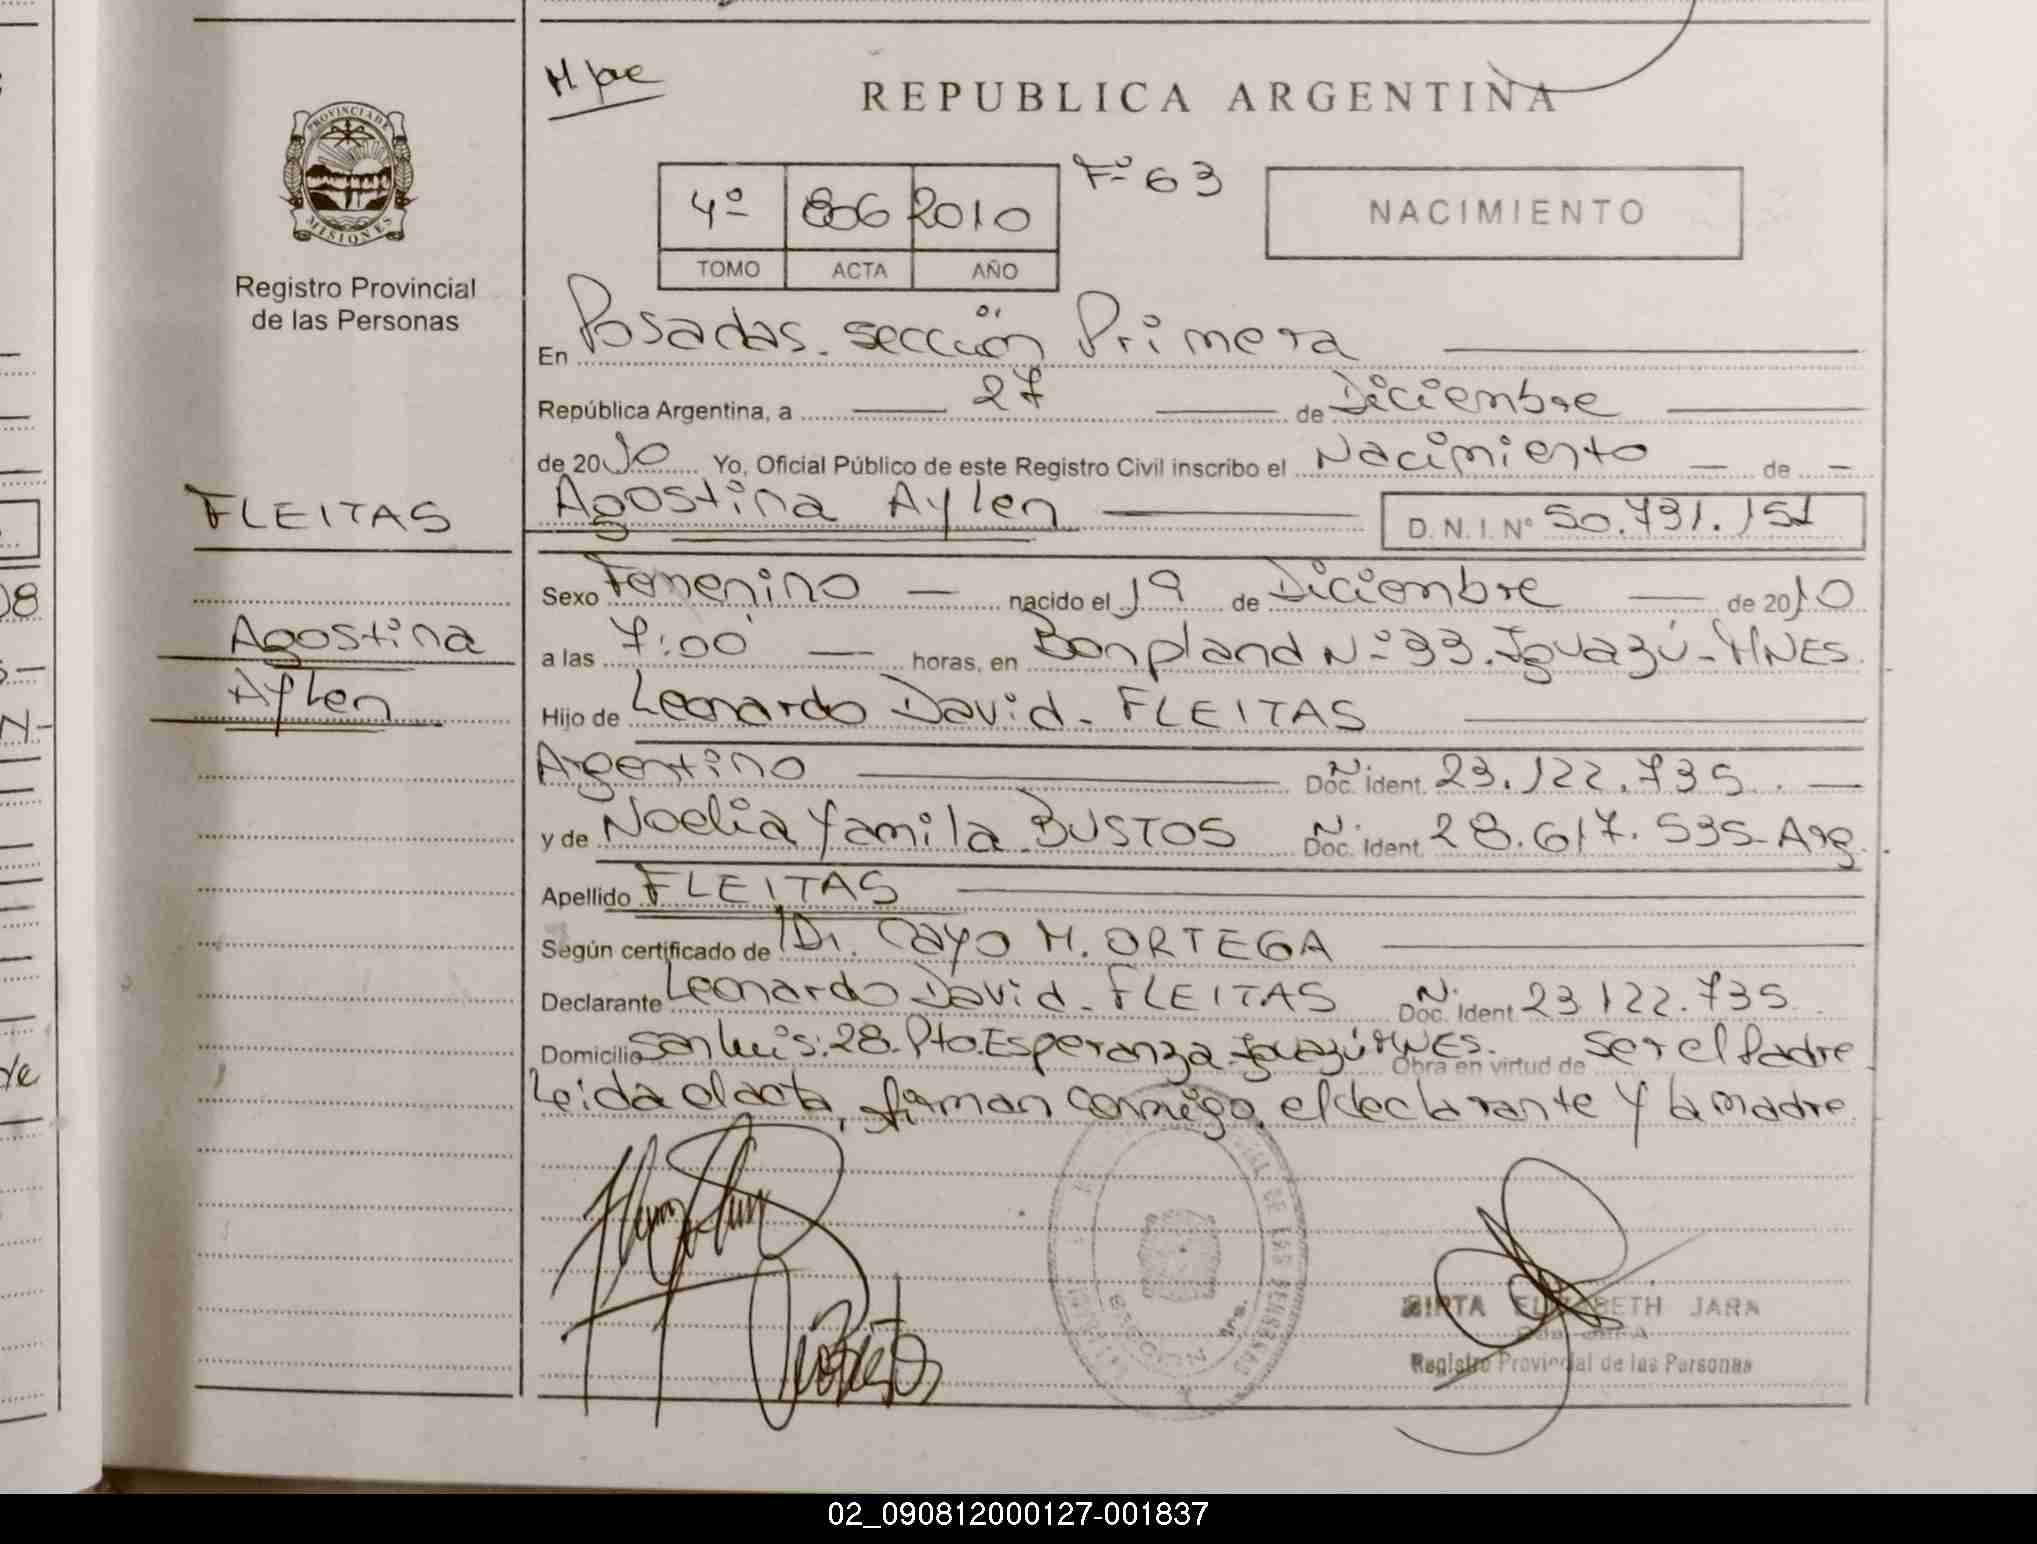 M pe
REPUBLICA ARGENTINA
PROVINCIA DE
MISIONES
Registro Provincial
de las Personas
4º 806 2010 Fº 63
TOMO ACTA AÑO
NACIMIENTO
En Posadas. sección Primera
República Argentina, a 27 de Diciembre
de 2010 Yo, Oficial Público de este Registro Civil inscribo el Nacimiento — de —
FLEITAS
Agostina Aylen D.N.I. Nº 50.731.151
Sexo Femenino — nacido el 19 de Diciembre — de 2010
Agostina
a las 7:00 — horas, en Bonpland Nº 33. Iguazú - MNES.
Aylen
Hijo de Leonardo David - FLEITAS
Argentino Nº Doc. Ident. 23.122.735. —
y de Noelia Yamila BUSTOS Nº Doc. Ident. 28.617.535 - Arg.
Apellido FLEITAS
Según certificado de Dr. Cayo M. ORTEGA
Declarante Leonardo David - FLEITAS Nº Doc. Ident. 23.122.735.
Domicilio San Luis: 28. Pto. Esperanza. Iguazú MNES. Obra en virtud de ser el Padre
Leida el acta, firman conmigo, el declarante y la madre.
DE LAS PERSONAS
SECCION
Mns.
MIRTA ELIZABETH JARA
Registro Provincial de las Personas
02_090812000127-001837